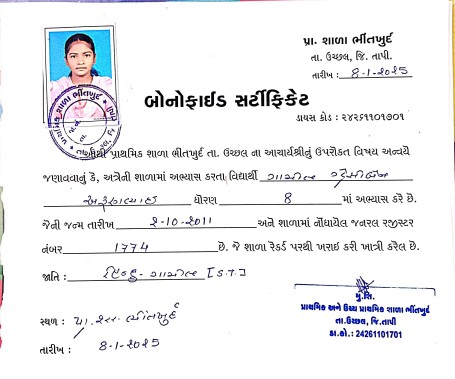 પ્રા. શાળા ભીંતખુર્દ
તા. ઉચ્છલ, જિ. તાપી.
તારીખ : 8-1-2025
બોનોફાઈડ સર્ટીફિકેટ
ડાયસ કોડ : ૨૪૨૬૧૧૦૧૭૦૧
પ્રાથમિક શાળા ભીંતખુર્દ તા. ઉચ્છલ ના આચાર્યશ્રીનું ઉપરોકત વિષય અન્વયે
જણાવવાનું કે, અત્રેની શાળામાં અભ્યાસ કરતા વિદ્યાર્થી ગામીત
ધોરણ 8 માં અભ્યાસ કરે છે.
જેની જન્મ તારીખ 2-10-2011 અને શાળામાં નોંધાયેલ જનરલ રજીસ્ટર
નંબર 1774 છે. જે શાળા રેકર્ડ પરથી ખરાઇ કરી ખાત્રી કરેલ છે.
જાતિ : હિન્દુ-ગામીત [S.T.]
મુ.શિ.
પ્રાથમિક અને ઉચ્ચ પ્રાથમિક શાળા ભીંતખુર્દ
તા.ઉચ્છલ, જિ.તાપી
ડા.કો.: 24261101701
સ્થળ : પ્રા. શાળા ભીંતખુર્દ
તારીખ : 8-1-2025